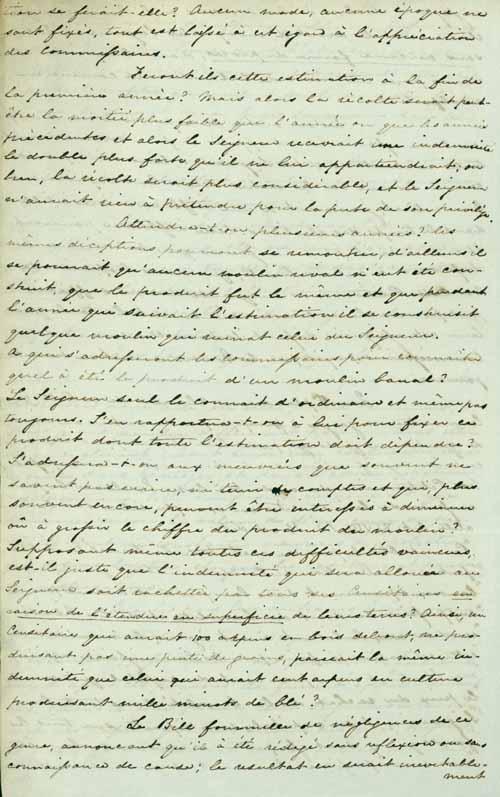 tion se ferait-elle? Aucun mode, aucune époque ne
sont fixés, tout est laissé à cet égard à l'appréciation
des Commissaires.
Feront ils cette estimation à la fin de
la première année? Mais alors la récolte serait peut-
être la moitié plus faible que l'année ou que les années
précédentes et alors le Seigneur recevrait une indemnité
le double plus forte qu'il ne lui appartiendrait; ou
bien, la récolte serait plus considérable, et le Seigneur
n'aurait rien à prétendre pour la perte de son privilège.
Attendra-t-on plusieurs années? les
mêmes déceptions pourront se rencontrer, d'ailleurs il
se pourrait qu'aucun moulin rival n'eut été con-
struit, que le produit fut le même et que pendant
l'année qui suivait l'estimation il se construisit
quelque moulin qui ruinat celui du Seigneur.
A qui s'adresseront les Commissaires pour connaitre
quel a été le produit d'un moulin banal?
Le Seigneur seul le connait d'ordinaire et même pas
toujours. S'en rapportera-t-on à lui pour fixer ce
produit dont toute l'estimation doit dépendre?
S'adressera-t-on aux meuniers qui souvent ne
savent pas écrire, ni tenir de comptes et qui, plus
souvent encore, peuvent être intéressés à diminuer
où à grossir le chiffre du produit du moulin?
Supposant même toutes ces difficultés vaincues,
est-il juste que l'indemnité qui sera allouée au
Seigneur soit rachetée par tous ses Censitaires en
raison de l'étendue en superficie de leurs terres? Ainsi, un
Censitaire qui aurait 100 arpens en bois debout, ne pro-
duisant pas une pinte de grains, paierait la même in-
demnité que celui qui aurait cent arpens en culture
produisant mille minots de blé?
Le Bill fourmille de négligences de ce
genre, annonçant qu'il a été rédigé sans reflexion ou sans
connaissance de cause; le resultat en serait inevitable-
ment